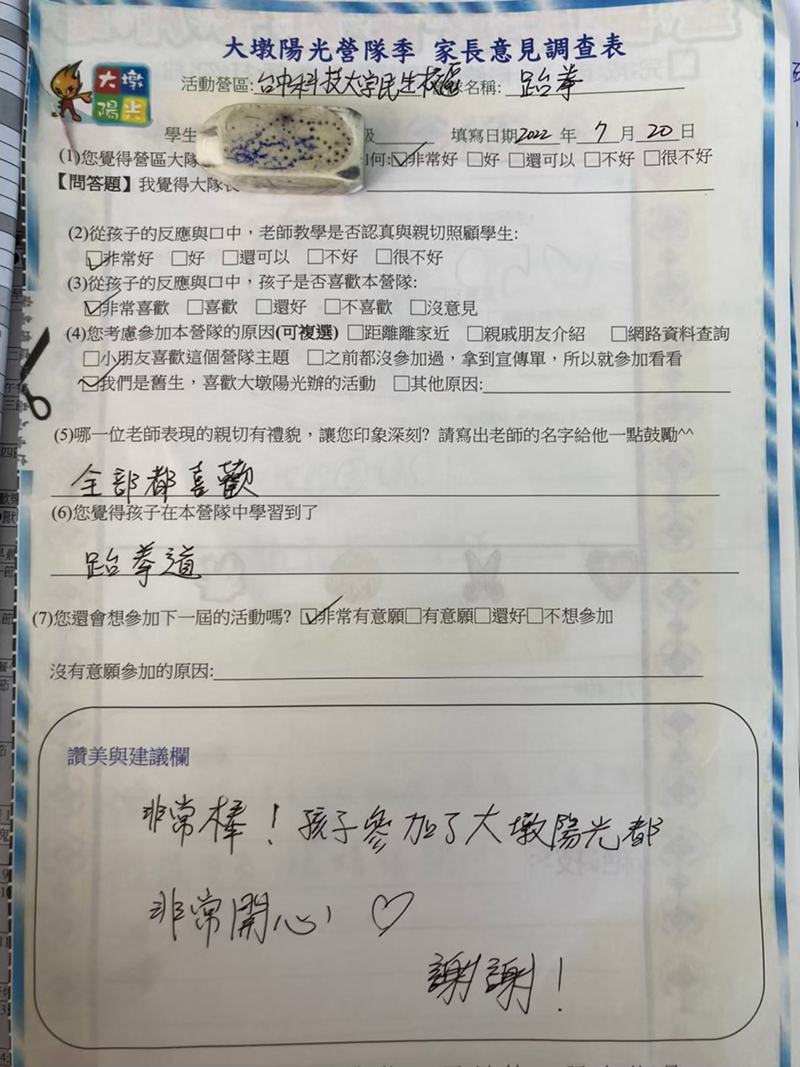 大墩陽光營隊季 家長意見調查表
大墩
陽光
活動營區:台中科技大學民生校區 名稱: 跆拳
學生 級 填寫日期2022年7月20日
(1)您覺得營區大隊 何:☑非常好 □好 □還可以 □不好 □很不好
【問答題】我覺得大隊長
(2)從孩子的反應與口中，老師教學是否認真與親切照顧學生:
☑非常好 □好 □還可以 □不好 □很不好
(3)從孩子的反應與口中，孩子是否喜歡本營隊:
☑非常喜歡 □喜歡 □還好 □不喜歡 □沒意見
(4)您考慮參加本營隊的原因(可複選) □距離離家近 □親戚朋友介紹 □網路資料查詢
□小朋友喜歡這個營隊主題 □之前都沒參加過，拿到宣傳單，所以就參加看看
☑我們是舊生，喜歡大墩陽光辦的活動 □其他原因:
(5)哪一位老師表現的親切有禮貌，讓您印象深刻? 請寫出老師的名字給他一點鼓勵^^
全部都喜歡
(6)您覺得孩子在本營隊中學習到了
跆拳道
(7)您還會想參加下一屆的活動嗎? ☑非常有意願□有意願□還好□不想參加
沒有意願參加的原因:
讚美與建議欄
非常棒！孩子參加了大墩陽光都
非常開心，♡
謝謝！